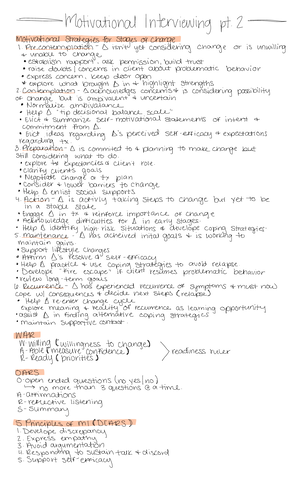 Motivational Interviewing pt. 2
Motivational Strategies for Stages of Change
1. Precontemplation - Δ isn't yet considering change or is unwilling
& unable to change
• establish rapport, ask permission, build trust
• raise doubts/concerns in client about problematic behavior
• express concern, keep door open
• explore what brought Δ in & highlight strengths
2. Contemplation - Δ acknowledges concerns & is considering possibility
of change but is ambivalent & uncertain
• Normalize ambivalence
• Help Δ "tip decisional balance scale"
• Elicit & summarize self-motivational statements of intent &
commitment from Δ
• Elicit ideas regarding Δ's perceived self-efficacy & expectations
regarding tx
3. Preparation - Δ is committed to & planning to make change but
still considering what to do.
• explore tx expectancies & client role
• clarify clients goals
• Negotiate change or tx plan
• Consider & lower barriers to change
• Help Δ enlist social supports
4. Action - Δ is actively taking steps to change but yet to be
in a stable state
• Engage Δ in tx & reinforce importance of change
• Acknowledge difficulties for Δ in early stages
• Help Δ identify high risk situations & develop coping strategies
5. Maintenance - Δ has achieved initial goals & is working to
maintain gains
• Support lifestyle changes
• Affirm Δ's resolve & self-efficacy
• Help Δ practice & use coping strategies to avoid relapse
• Develop "fire escape" if client resumes problematic behavior
• Review long-term goals
6. Recurrence - Δ has experienced recurrence of symptoms & must now
cope w/ consequences & decide next steps (relapse)
• Help Δ re-enter change cycle
explore meaning & reality of recurrence as learning opportunity
• assist Δ in finding alternative coping strategies
• maintain supportive contact
WAR
W-Willing (willingness to change)
A-Able (measure confidence)
R-Ready (priorities)
readiness ruler
OARS
O-open ended questions (no yes/no)
no more than 3 questions @ a time
A-affirmations
R-reflective listening
S-Summary
5 Principles of MI (DEARS)
1. Develop discrepancy
2. Express empathy
3. Avoid argumentation
4. Responding to sustain talk & discord
5. Support self-efficacy